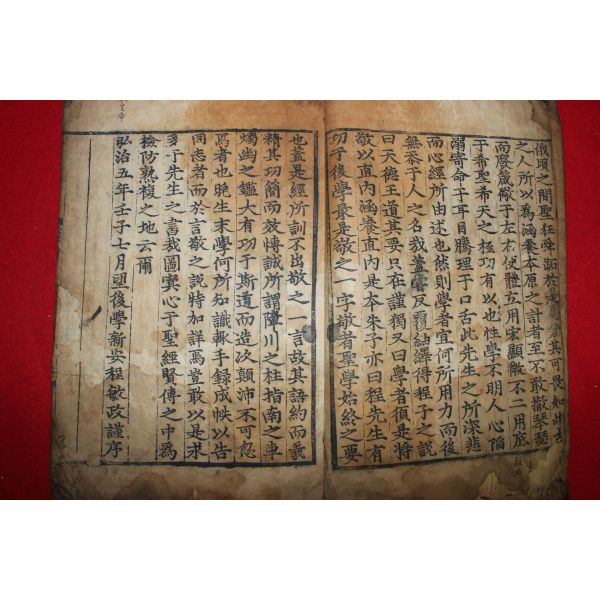 俄頃之間聖狂舜跖於是焉分其可畏如此古
之人所以爲涵養本原之計者至不敢撤琴瑟
而廢箴儆于左右使體立用宏顯微不二用底
于希聖希天之極功有以也性學不明人心陷
溺寄命于耳目騰理于口舌此先生之所深悲
而心經所由述也然則學者宜何所用力而後
無忝于人之名哉蓋嘗反覆紬繹得程子之說
曰天德王道其要只在謹獨又曰學者須是將
敬以直內涵養直內是本朱子亦曰程先生有
功于後學最是敬之一字敬者聖學始終之要
也蓋是經所訓不出敬之一言故其語約而義
精其功簡而效博誠所謂障川之柱指南之車
燭幽之鑑大有功于斯道而造次顚沛不可忽
焉者也晚生末學何所知識輒手錄成帙以告
同志者而於言敬之說特加詳焉豈敢以是求
多于先生之書哉圖寘心于聖經賢傳之中爲
檢防熟複之地云爾
弘治五年壬子七月望後學新安程敏政謹序